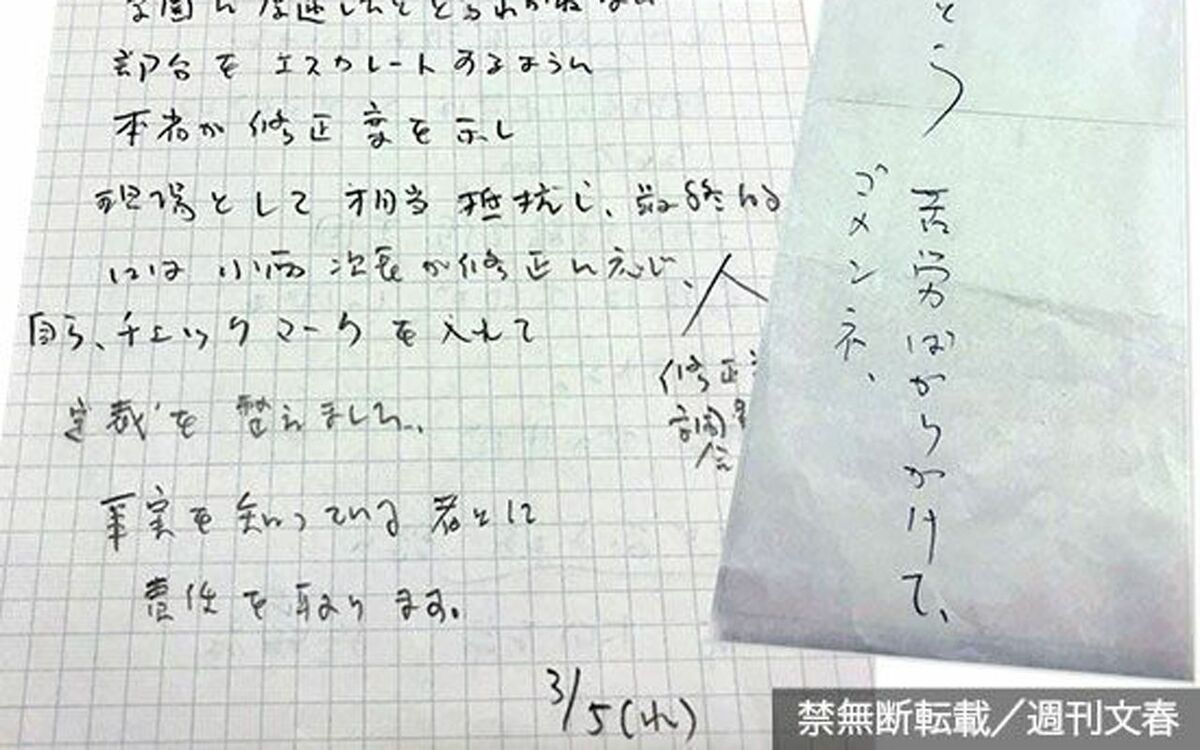 学園に厚遇したととられかねない
部分をエスカレートするように
本省が修正案を示し
現場として相当抵抗し、最終的
には小西次長が修正に応じ、
自ら、チェックマークを入れて
定裁を整えました、
事実を知っている者として
責任を取ります。
3/5(水)
修正
調
とう
苦労ばかりかけて、
ゴメンネ、
禁無断転載／週刊文春